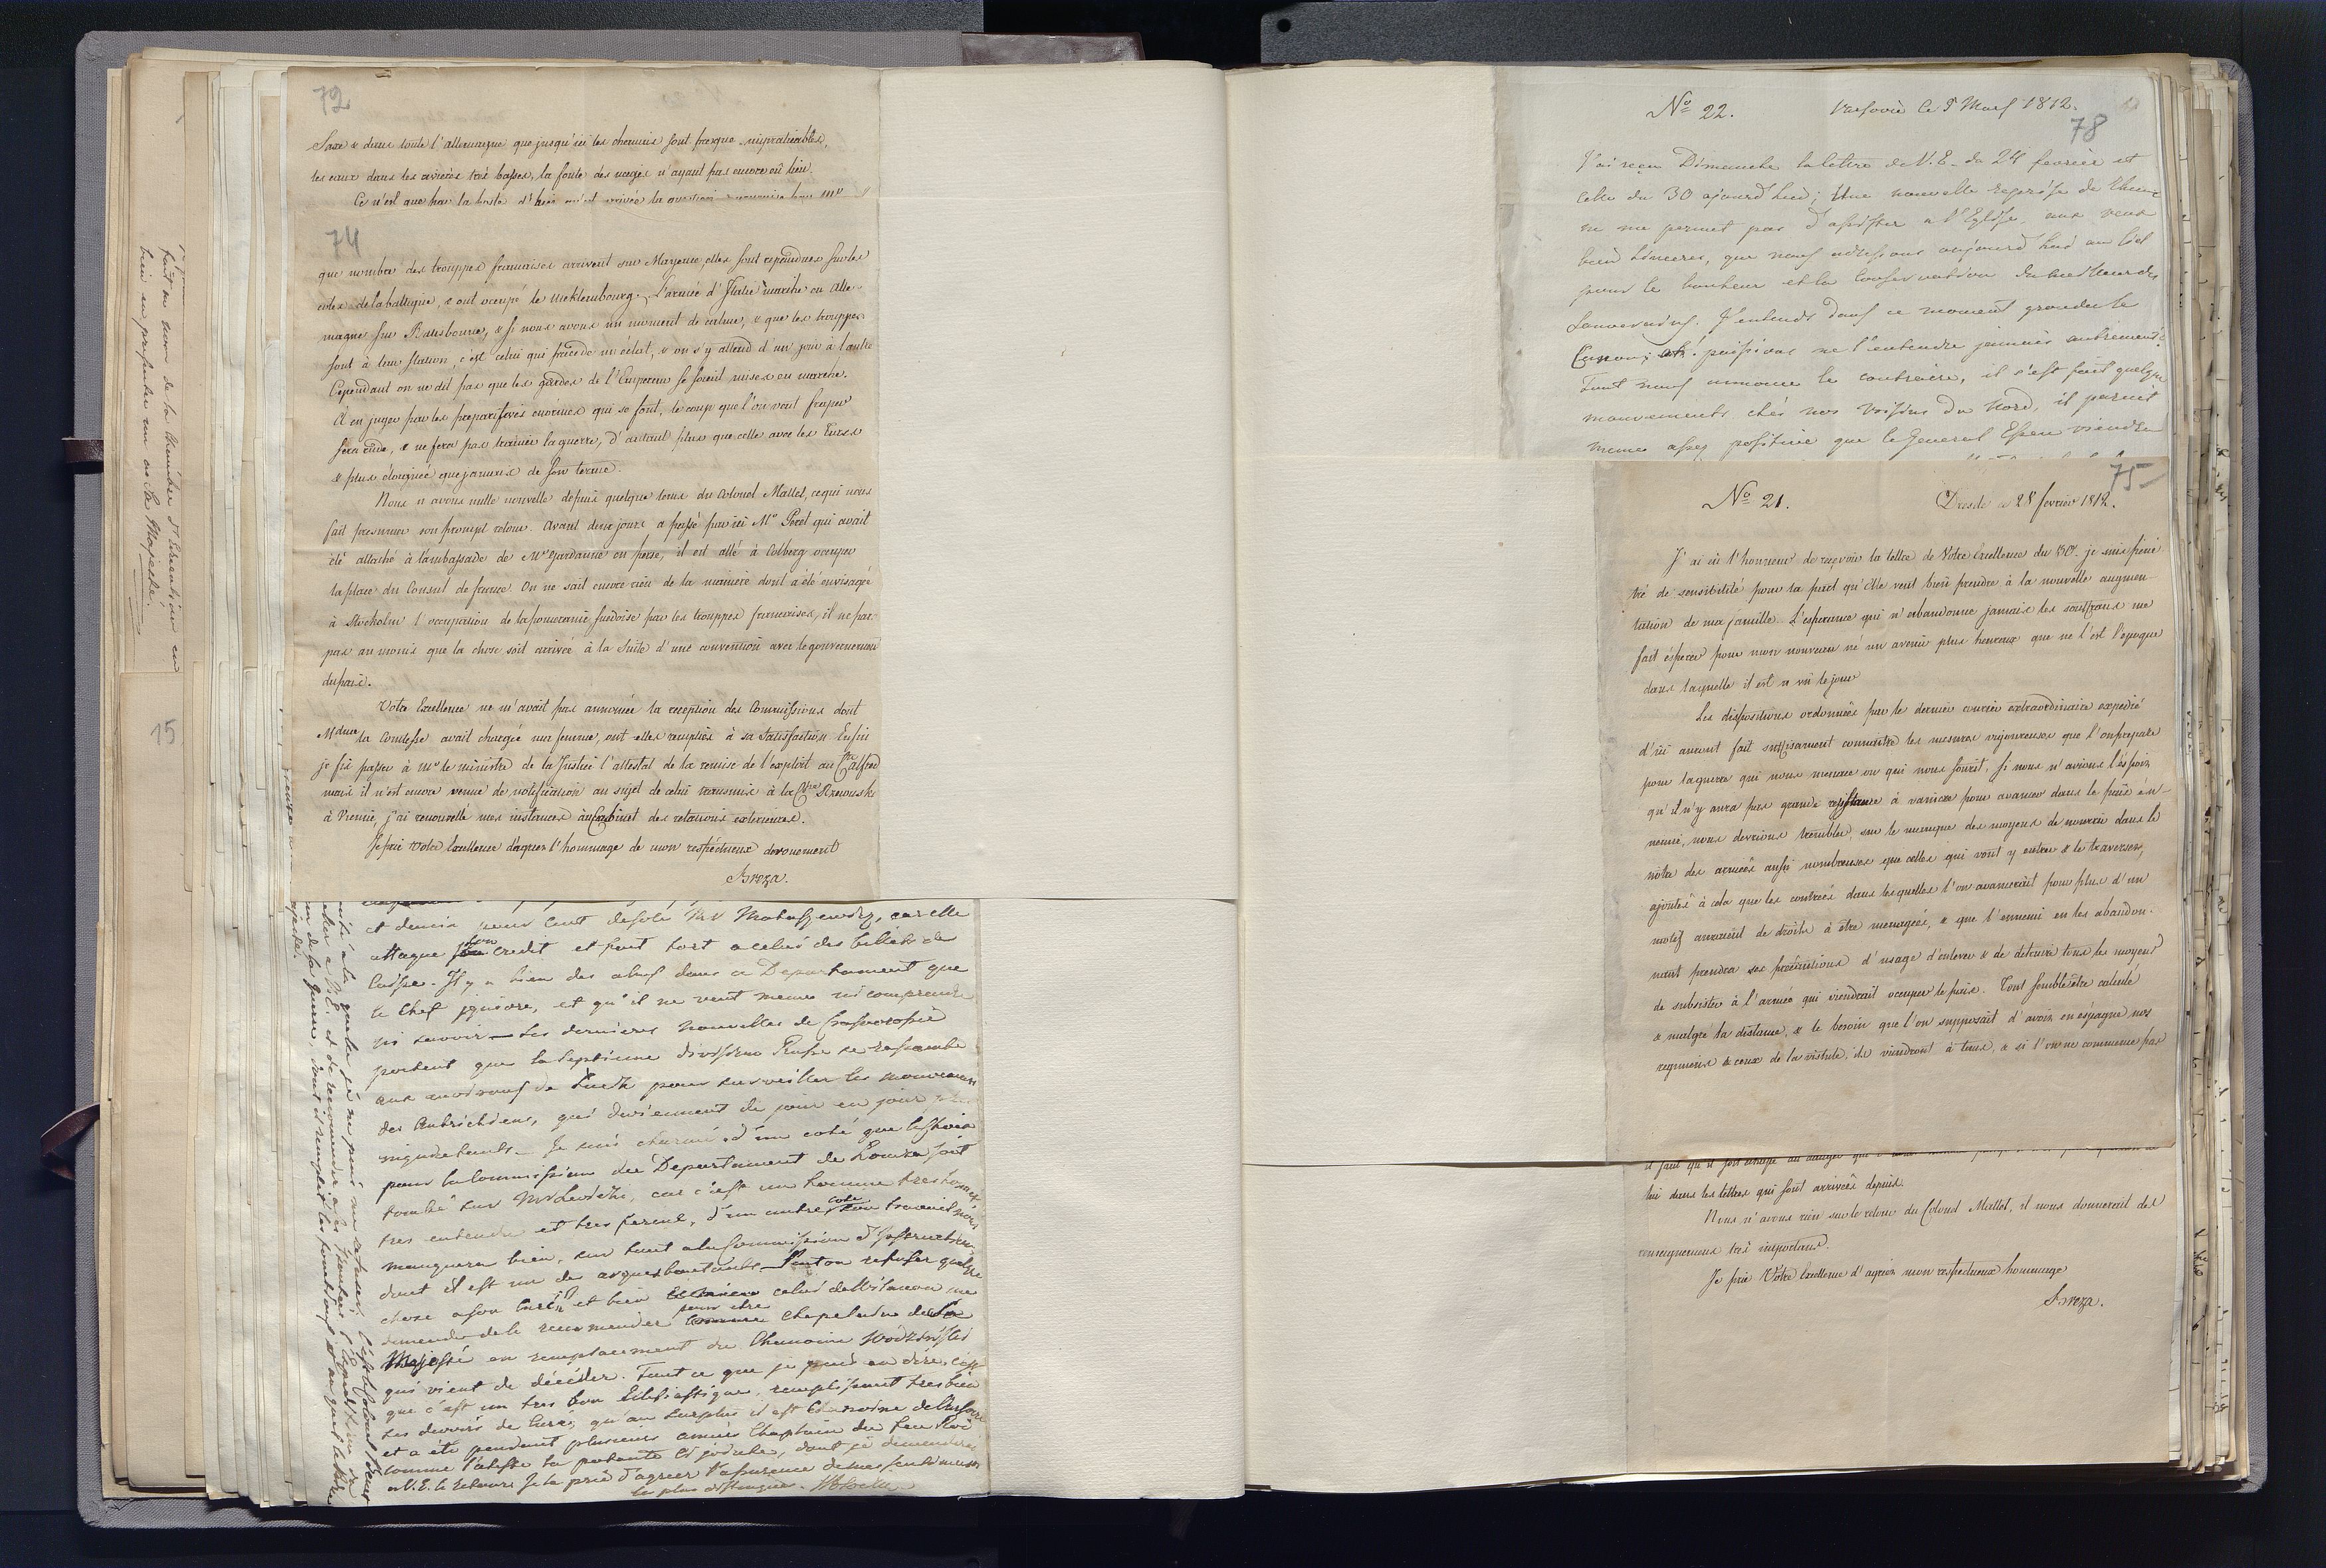 72
Saxe & dans toute l'allemagne que jusqu'ici les chemins sont presque impraticables,
les eaux dans les rivierès tres basses, la fonte des neiges n'ayant pas encore eû lieu.
Ce n'est que par la poste d'hier qu'est arrivée la question
74
que nombre des trouppes francaises arrivent sur Mayence, elles sont repandues sur les
cotes de la baltique, & ont occupé le meklembourg. L'armée d'Italie marche en Alle-
magne sur Ratisbonne, & si nous avons un moment de calme, & que les trouppes
sont à leur station, c'est celui qui précede un éclat, & on s'y attend d'un jour à l'autre
Cependant on ne dit pas que les gardes de l'Empereur se soient mises en marche.
A en juger par les preparatives enormes qui se font, le coup que l'on veut fraper
sera rude, & ne fera pas trainer la guerre, d'autant plus que celle avec les Turcs
& plus éloignée que jamais de son terme.
Nous n'avons nulle nouvelle depuis quelque tems du Colonel Mallet, ce qui nous
fait presumer son prompt retour. Avant deux jours a passé par ici Mr Peret qui avait
été attaché à l'ambassade de Mr Gardanne en perse, il est allé à Colberg occuper
la place du Consul de france. On ne sait encore rien de la maniere dont a été envisagée
à Stockolm l'occupation de la pomeranie suedoise par les trouppes francaises, il ne par-
pas au moins que la chose soit arrivée à la suite d'une convention avec le gouvernement
du païs.
Votre Excellence ne m'avait pas annoncé la reception des Commissions dont
Mdme la Comtesse avait chargée ma femme, ont elles remplies à sa satisfaction. Enfin
je fis passer à Mr le ministre de la Justice l'attestat de la remise de l'exploit au Cte Alfred
mais il n'est encore venue de notification au sujet de celui transmis à la Ctsse Rzewuska
à Vienne, j'ai renouvellé mes instances au Cabinet des relations exterieures.
Je prie Votre Excellence d'agréer l'hommage de mon respectueux devouement
Breza.
et demain pour cent desole Mr Matuszewicz, car elle
attaque son credit et fait tort a celui des billets de
Caisse. Il y a bien des abus dans ce Departement que
le Chef ignore, et qu'il ne veut meme ni comprendre
ni savoir – Les dernieres nouvelles de
portent que la septieme division Russe se rassemble
aux environs de Luck pour surveiller les mouvemens
des Autrichiens, qui deviennent de jour en jour plus
inquietants – Je suis charmé d'un coté que le choix
pour la Commission du Departement de Lomza soit
tombé sur Mr Lewicki, car c'est un homme tres honnet
tres entendu et tres ferme, d'un autre coté son travail nous
manquera bien, sur tout a la Commission d'Instruction
dont il est un des arquesboutants – Peut on refuser quelque
chose a son Curé, et bien celui de Wilanow me
demande de le recommander pour etre Chapelain de Sa
Majesté en remplacement du Chanoine Wodzinski
qui vient de décéder. Tout ce que je puis en dire, c'est
que c'est un tres bon Eclesiastique, remplissant tres bien
les devoirs de Curé, qu'au surplus il est Chanoine de
et a été pendant plusieurs années Chapelain du feu Roi
comme l'atteste la patente ci jointe, dont je demanderai
a V. E. le retour. Je la prie d'agreer l'assurance de mes sentimens
les plus distingués.
fait au nom de la Chambre d'Education en
bien en presenter un au Sa Majesté.
15
No 22.
Varsovie le 5 Mars 1812.
78
J'ai reçu Dimanche la lettre de V. E. du 24 fevrier et
celle du 30 ajourd'hui; Une nouvelle reprise de Rhume
ne me permet pas d'assister a l'Eglise aux vœux
bien sinceres, que nous adressons aujourd'hui au Ciel
pour le bonheur et la Conservation du meilleur des
Souverains. J'entends dans ce moment gronder le
Canon; ah! puissions ne l'entendre jamais autrement.
Tout nous annonce le contraire, il s'est fait quelque
mouvements chés nos Voisins du Nord, il paroit
meme assez positive que le General Essen viendra
75
No 21.
Dresde ce 28 fevrier 1812.
J'ai eû l'honneur de reçevoir la lettre de Votre Excellence du je suis péné-
tré de sensibilité pour la part qu'Elle veut bien prendre à la nouvelle augmen-
tation de ma famille. L'esperance qui n'abandonne jamais les souffrans me
fait espérer pour mon nouveau né un avenir plus heureux que ne l'est l'epoque
dans laquelle il est a vû le jour
Les dispositions ordonnées par le dernier courier extraordinaire expedié
d'ici auront fait suffisament connaitre les mesures vigoureuses que l'on prepare
pour la guerre qui nous menace ou qui nous sourit. Si nous n'avions l'éspoir
qu'il n'y aura pas grande resistance à vaincre pour avancer dans le païs én-
nemi, nous devrions trembler sur le manque des moyens de nourrir dans le
nôtre des armées aussi nombreuses que celles qui vont y entrer & le traverser,
ajoutés à cela que les contrées dans lesquelles l'on avancerait pour plus d'un
motif auraient de droits à être menagées, & que l'ennemi en les abandon-
nant prendra ses précautions d'usage d'enlever & de detruire tous les moyens
de subsister à l'armée qui viendrait occuper le païs. Tout semble être calculé
& malgré la distance, & le besoin que l'on supposait d'avoir en éspagne nos
regimens & ceux de la vistule, ils viendront à tems, & si l'on ne commence pas
lui dans les lettres qui sont arrivées depuis.
Nous n'avons rien sur le retour du Colonel Mallet, il nous donnerait des
renseignemens très importans.
Je prie Votre Excellence d'agréer mon respectueux hommage
Breza.